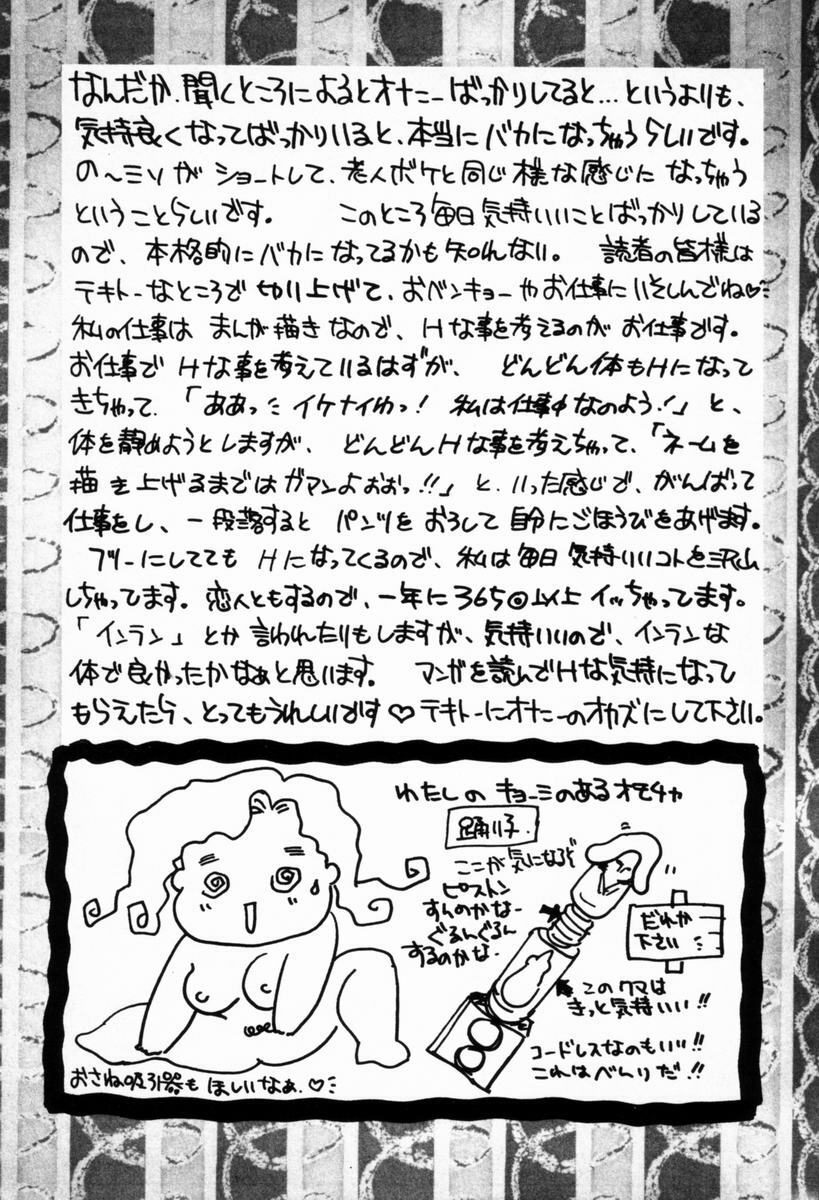 なんだか、聞くところによるとオナニーばっかりしてると…というよりも、
気持良くなってばっかりいると、本当にバカになっちゃうらしいです。
の〜ミソがショートして、老人ボケと同じ様な感じになっちゃう
ということらしいです。 このところ毎日気持いいことばっかりしている
ので、本格的にバカになってるかも知れない。 読者の皆様は
テキトーなところで切り上げて、おベンキョーやお仕事にいそしんでね♡
私の仕事はまんが描きなので、Hな事を考えるのがお仕事です。
お仕事でHな事を考えているはずが、 どんどん体もHになって
きちゃって、「ああっ イケナイわっ! 私は仕事中なのよう!」と、
体を静めようとしますが、 どんどんHな事を考えちゃって、「ネームを
描き上げるまではガマンよおおっ!!」と、いった感じで、がんばって
仕事をし、一段落するとパンツをおろして自分にごほうびをあげます。
フツーにしててもHになってくるので、私は毎日気持いいコトを沢山
しちゃってます。恋人ともするので、一年に365回以上イッちゃってます。
「インラン」とか言われたりもしますが、気持いいので、インランな
体で良かったかなぁと思います。 マンガを読んでHな気持になって
もらえたら、とってもうれしいです♡テキトーにオナニーのオカズにして下さい。
わたしのキョーミのあるオモチャ
踊り子
ここが気になるぞ
ピストン
すんのかなー
ぐるんぐるん
するのかな-
だれか
下さい
このクマは
きっと気持いい!!
コードレスなのもいい!!
これはべんりだ!!
おさね吸引器もほしいなぁ.♡